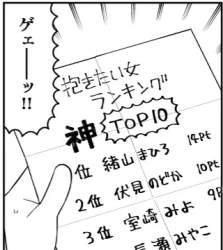 ゲェーーッ!!
抱きたい女
ランキング
TOP10
神
位 緒山まひろ 14Pt
2位 伏見のどか 10Pt
3位 室崎みよ 9P
長瀬みやこ